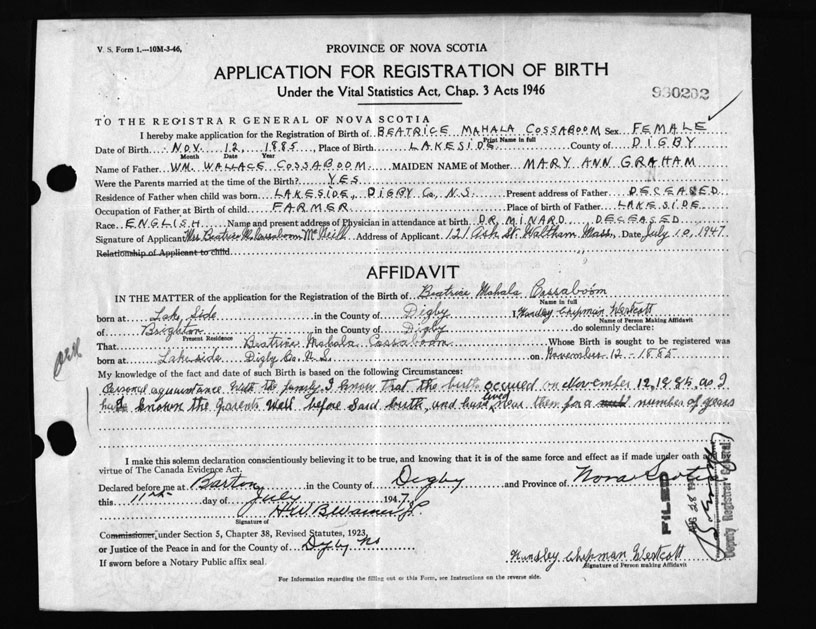 V. S. Form 1.—10M-3-46,
PROVINCE OF NOVA SCOTIA
APPLICATION FOR REGISTRATION OF BIRTH
Under the Vital Statistics Act, Chap. 3 Acts 1946
930202
TO THE REGISTRAR GENERAL OF NOVA SCOTIA
I hereby make application for the Registration of Birth of BEATRICE MAHALA COSSABOOM Sex FEMALE
Print Name in full
Date of Birth NOV. 12, 1885 Place of Birth LAKESIDE County of DIGBY
Month Date Year
Name of Father WM. WALLACE COSSABOOM MAIDEN NAME of Mother MARY ANN GRAHAM
Were the Parents married at the time of the Birth? YES
Residence of Father when child was born LAKESIDE, DIGBY Co, N.S. Present address of Father DECEASED
Occupation of Father at Birth of child FARMER Place of birth of Father LAKESIDE
Race ENGLISH Name and present address of Physician in attendance at birth DR. MINARD, DECEASED
Signature of Applicant Mrs Beatrice M. Cossaboom McNeill Address of Applicant 121 Ash St. Waltham Mass, Date July 10, 1947
Relationship of Applicant to child
AFFIDAVIT
IN THE MATTER of the application for the Registration of the Birth of Beatrice Mahala Cossaboom
Name in full
born at Lake Side in the County of Digby I, Hundley Chipman Westcott
Name of Person Making Affidavit
of Brighton in the County of Digby do solemnly declare:
Present Residence
That Beatrice Mahala Cossaboom Whose Birth is sought to be registered was
born at Lakeside Digby Co. N.S. on November 12 - 1885
My knowledge of the fact and date of such Birth is based on the following Circumstances:
Personal aquaintance with the family I know that the birth occured on November 12, 1885, as I
had known the parents well before said birth, and have lived near them for a number of years
I make this solemn declaration conscientiously believing it to be true, and knowing that it is of the same force and effect as if made under oath and by
virtue of The Canada Evidence Act.
Declared before me at Barton in the County of Digby and Province of Nova Scotia
this 11th day of July 1947
Signature of
Commissioner, under Section 5, Chapter 38, Revised Statutes, 1923,
or Justice of the Peace in and for the County of Digby NS
If sworn before a Notary Public affix seal.
Hundley Chipman Westcott
Signature of Person making Affidavit
FILED
AUG 28 1947
Deputy Registrar General
For Information regarding the filling out of this Form, see Instructions on the reverse side.